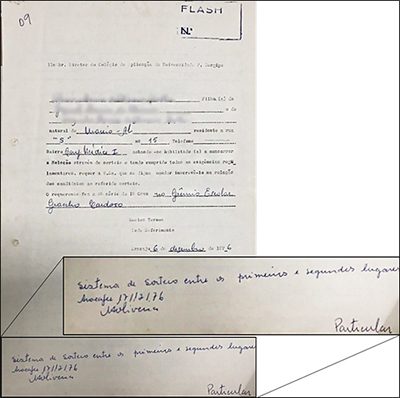 09
FLASH
Nº
Ilmº Sr. Diretor do Colégio de Aplicação da Universidade F. Sergipe
Filho(a) de
e
natural de Maceió-Al residente a rua
"S" nº 15 Telefone
Bairro Conj. Médici I achando-se habilitado (a) a concorrer
a Seleção através de sorteio e tendo cumprido todas as exigências reg
lamentares, requer a V.Sa. que se digne mandar inscrevê-lo na relação
dos candidatos ao referido sorteio.
O requerente fez a 4ª série do 1º Grau no Grêmio Escolar
Graccho Cardoso
Nestes Termos
Pede Deferimento
Aracaju 6 de dezembro de 197 6
Sistema de Sorteio entre os primeiros e segundos lugares
Aracaju 17/12/76
MOliveira
Particular
Sistema de Sorteio entre os primeiros e segundos lugares
Aracaju 17/12/76
MOliveira
Particular